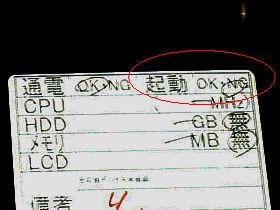 通電 OK・NG 起動 OK・NG
CPU MHz
HDD GB 無
メモリ MB 無
LCD
備考 4